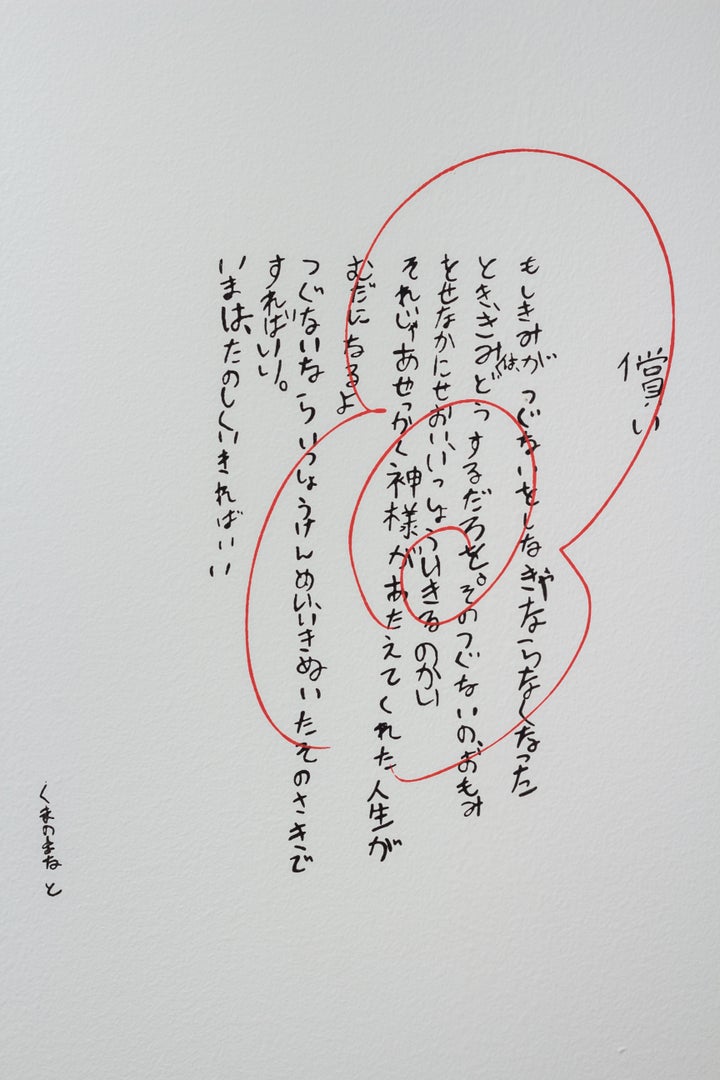 償い
もしきみがつぐないをしなきゃならなくなった
とき、きみはどうするだろを。そのつぐないの、おもみ
をせなかにせおい、いっしょういきるのかい
それじゃあせっかく神様があたえてくれた人生が
むだになるよ
つぐないならいっしょうけんめい、いきぬいたそのさきで
すればいい。
いまは、たのしくいきればいい
くまのまなと